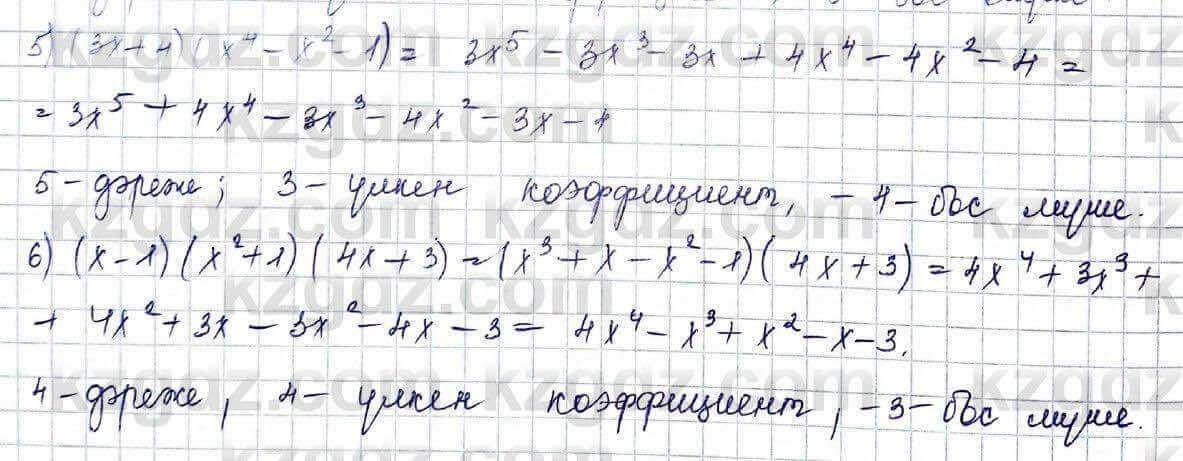 5) (3x+4)(x⁴ - x² - 1) = 3x⁵ - 3x³ - 3x + 4x⁴ - 4x² - 4 =
= 3x⁵ + 4x⁴ - 3x³ - 4x² - 3x - 4
5 - дәреже; 3 - үлкен коэффициент, - 4 - бос мүше.
6) (x-1)(x²+1)(4x+3) = (x³ + x - x² - 1)(4x+3) = 4x⁴ + 3x³ +
+ 4x² + 3x - 3x² - 4x - 3 = 4x⁴ - x³ + x² - x - 3.
4 - дәреже, 4 - үлкен коэффициент, -3 - бос мүше.
kzgdz.com